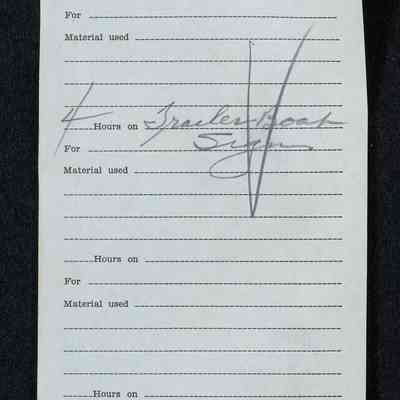 For
Material used
4 Hours on Trailer Boat
For Sign
Material used
Hours on
For
Material used
Hours on